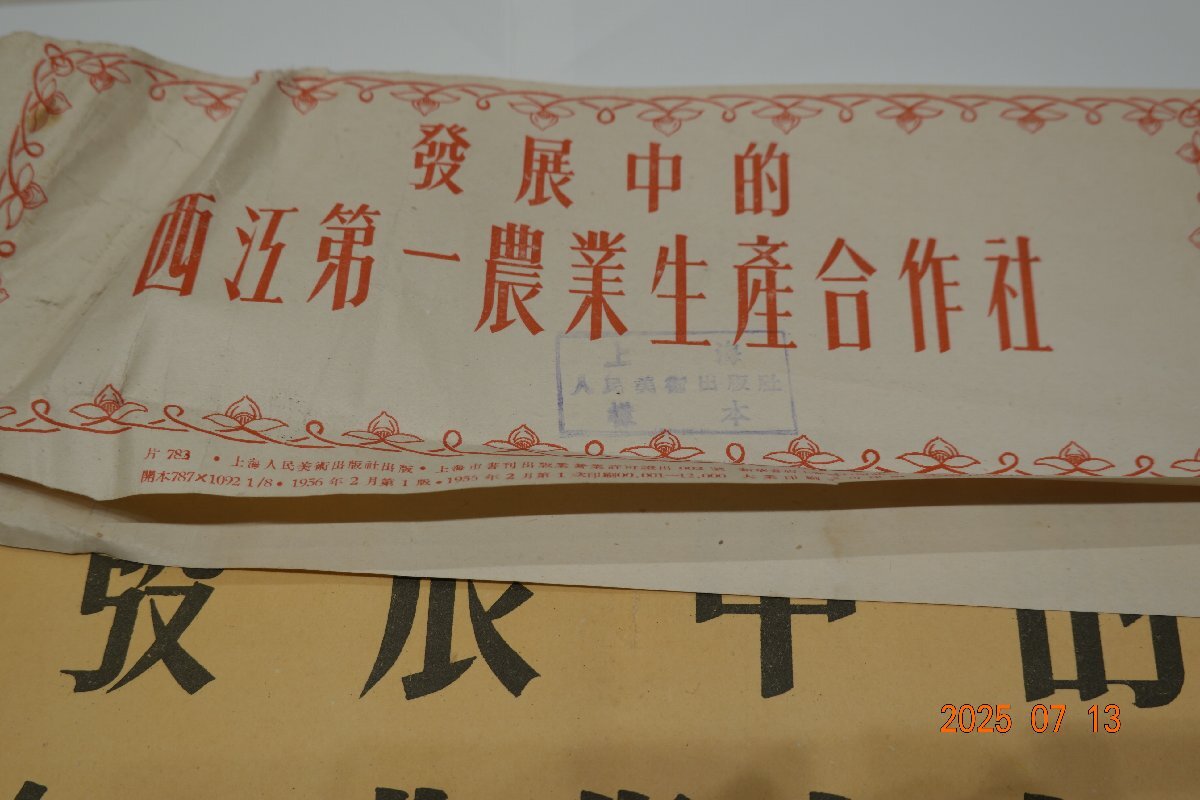 發展中的
西江第一農業生產合作社
上海
人民美術出版社
樣本
片 783 · 上海人民美術出版社出版 · 上海市書刊出版業營業許可證出 002 號
開本787×1092 1/8 · 1956 年 2 月第 1 版 · 1956 年 2 月第 1 次印刷00,001—12,000
發展中的
2025 07 13